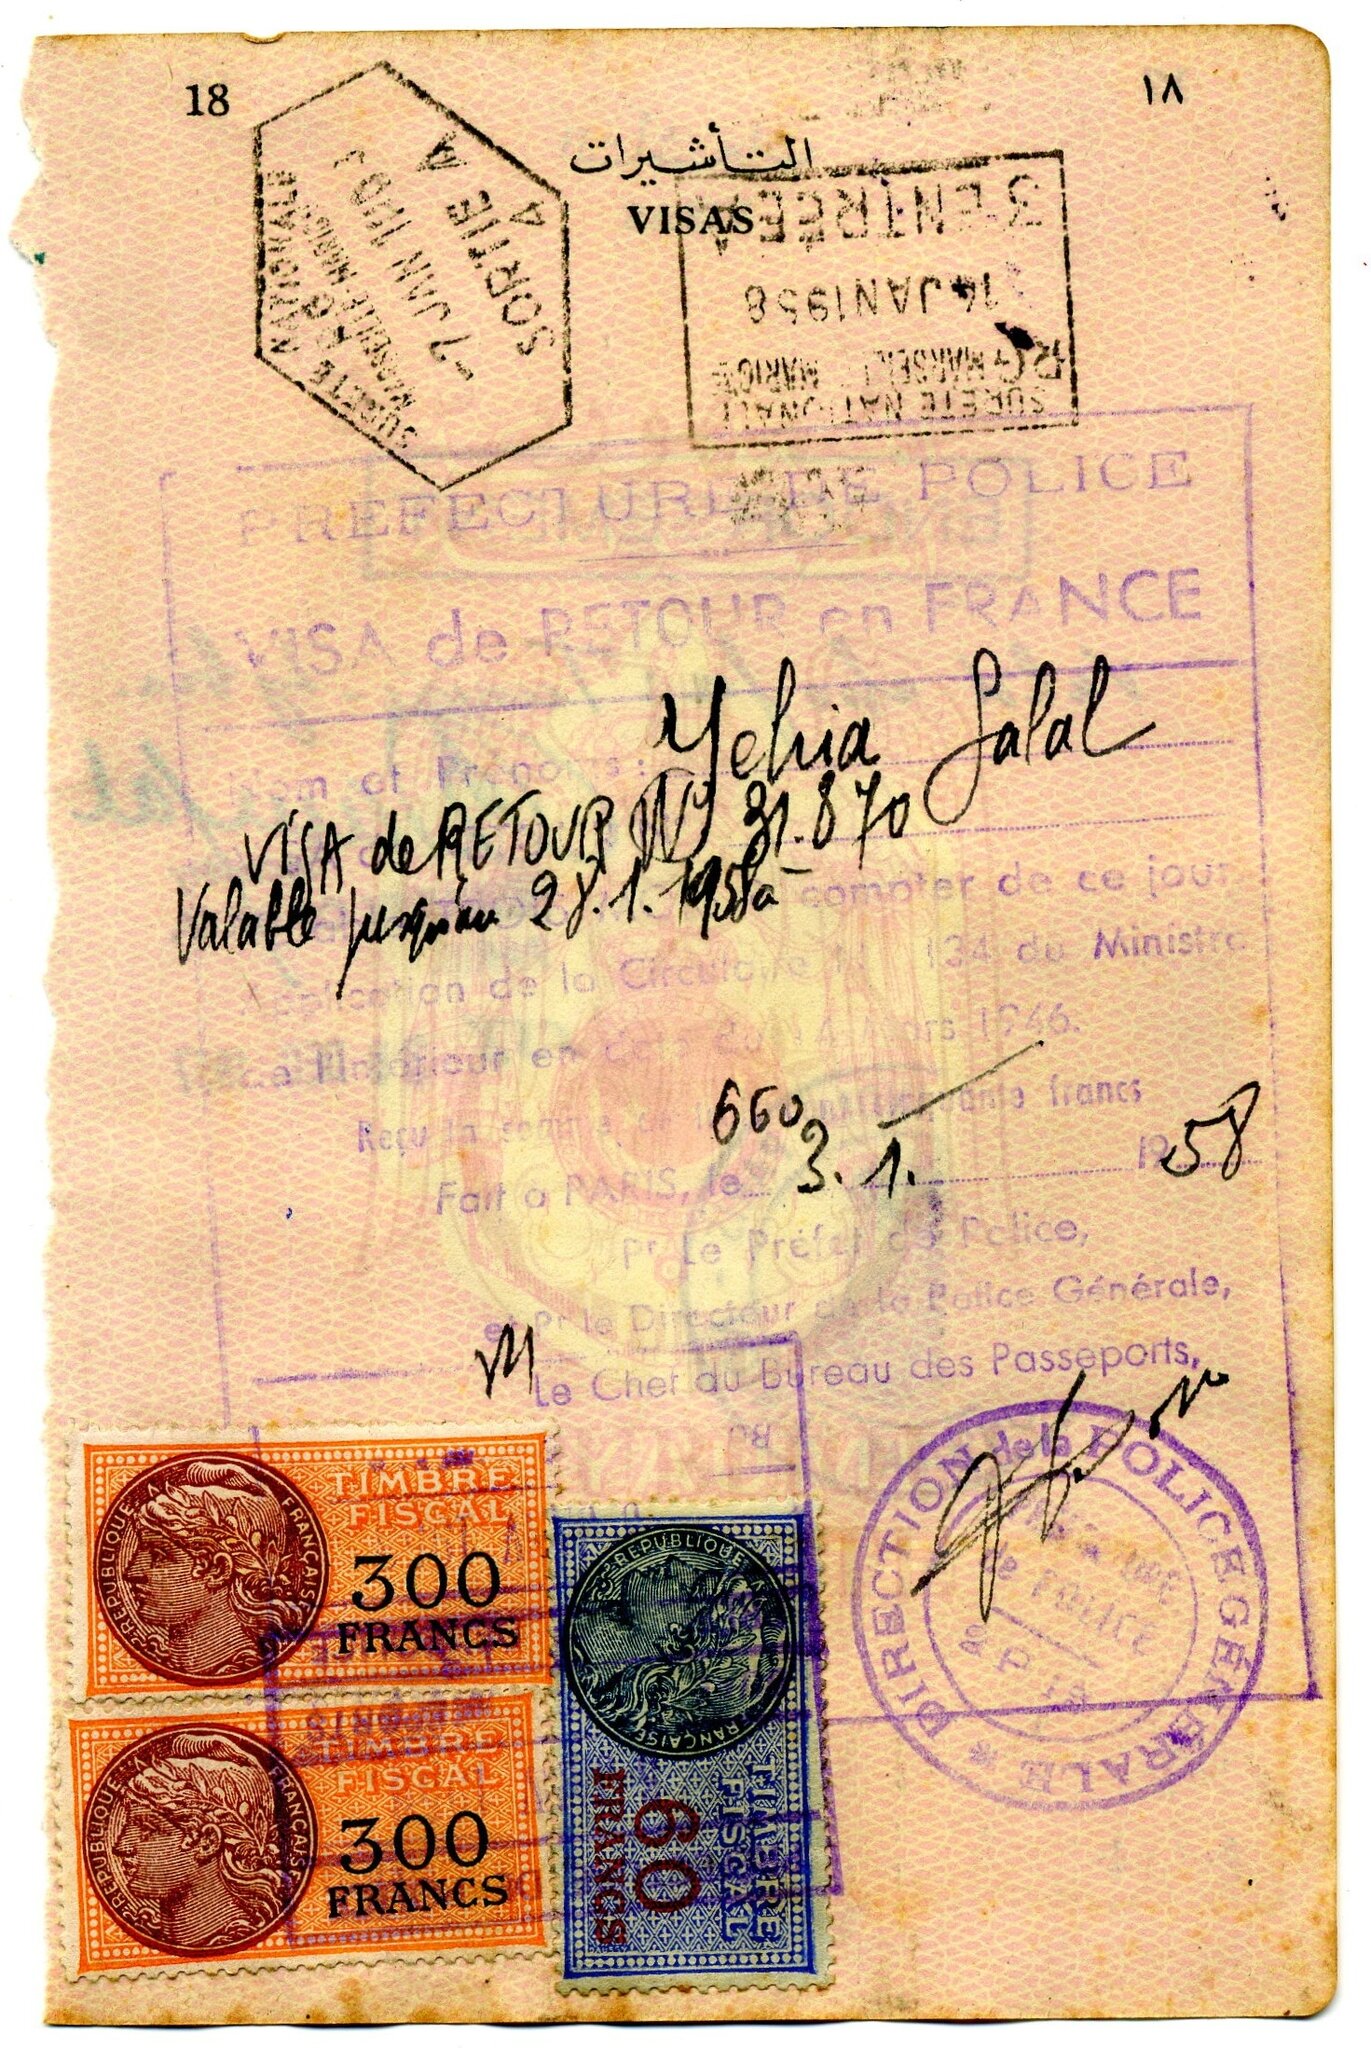 18
١٨
التأشيرات
VISAS
SORTIE A
A
-7 JAN
SURETE NATIONALE
3 ENTRÉE A
14 JAN 1958
RG MARSEILLE MARIGNE
SURETE NATIONALE
PREFECTURE DE POLICE
VISA de RETOUR en FRANCE
Nom et Prénoms: Yehia Galal
VISA de RETOUR No 31.870
Valable jusqu'au 28.1.1958
à compter de ce jour
Application de la Circulaire N 134 du Ministre
de l'Intérieur en date du 14 Mars 1946.
Reçu la somme de cinquante francs
660
Fait à PARIS, le 3. 1. 1958
Pr Le Préfet de Police,
et Pr le Directeur de la Police Générale,
Le Chef du Bureau des Passeports,
DIRECTION de la POLICE GÉNÉRALE *
POLICE
TIMBRE
FISCAL
300
FRANCS
REPUBLIQUE FRANÇAISE
TIMBRE
FISCAL
300
FRANCS
REPUBLIQUE FRANÇAISE
TIMBRE
FISCAL
60
FRANCS
REPUBLIQUE FRANÇAISE